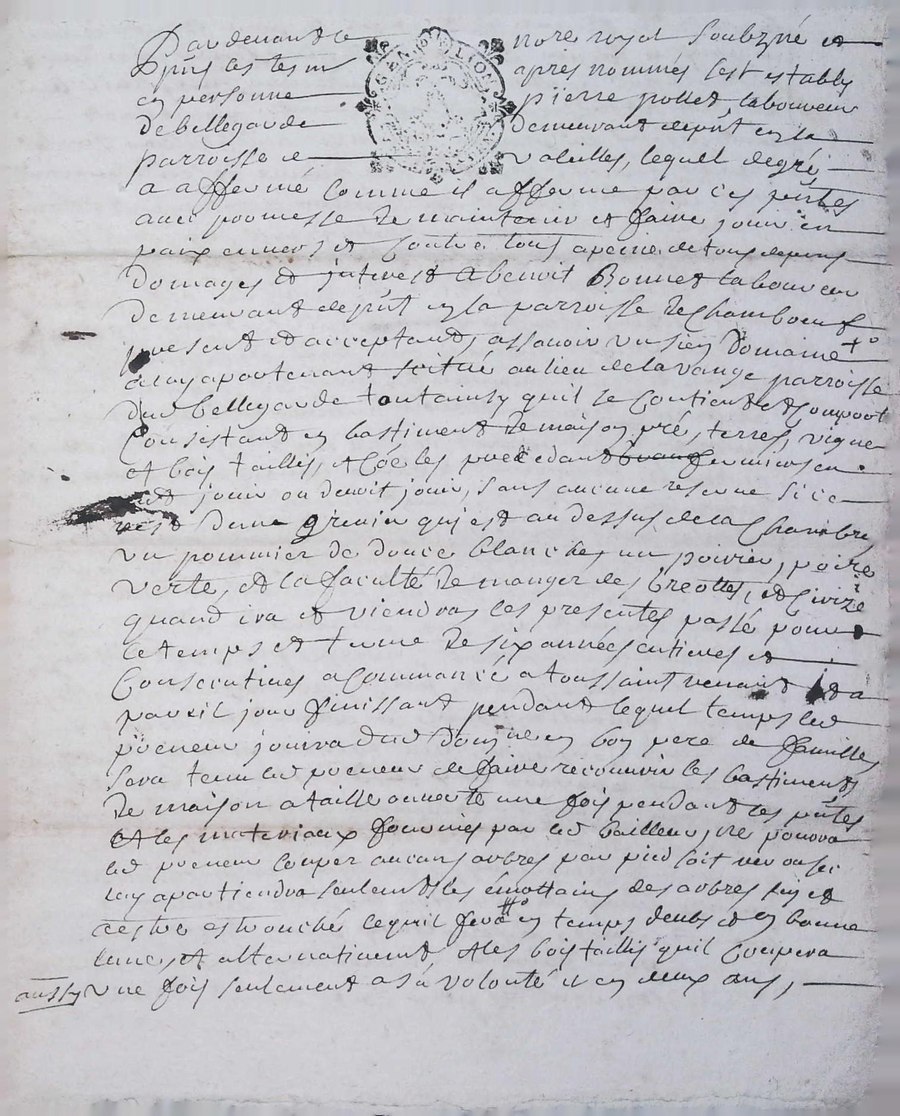 Par devant le nore royal soubzné et
puis les tesm après nommés s'est estably
en personne pierre pollet, laboureur
de bellegarde demeurant de pñt en la
parroisse de valeilles, lequel de gré
a affermé comme il afferme par ces pñtes
avec promesse de maintenir et faire jouir en
paix envers et contre tous a peine de tous depens
domages et interest A benoit Bonnet laboureur
demeurant de pñt en la parroisse de Chamboeuf
present et acceptant, assavoir un sien Domaine +
a luy apartenant scitué au lieu de la vange parroisse
dud bellegarde tout ainsy quil se contient et comport
Consistant en bastiment de maison pré, terres, vigne
et bois taillis, et que les precedant fermiers en
ont joui ou devoit jouir, sans aucune reserve si ce
n'est d'une grenier qui est au dessus de la Chambre,
un pommier de douce blanche, un poirier, poire
verte, et la faculté de manger des et
quand ira et viendra les presentes passé pour
le temps et terme de six années entieres et
Consecutives a Commancé a toussaint venant et a
pareil jour finissant pendant lequel temps led
preneur jouira dud Domaine en bon pere de famille
sera tenu led preneur de faire recouvrir les bastiments
de maison a taille ouverte une fois pendant les pñtes
et les materiaux fournies par led bailleur, ne pourra
led preneur couper aucuns arbres par pied soit verd ou sec
luy apartiendra seulemt les émottains des arbres
lequil fera en temps deubs et en bonne
lune, et alternativemt et les bois taillis quil coupera
aussy une fois seulement a sa volonté et en deux ans,